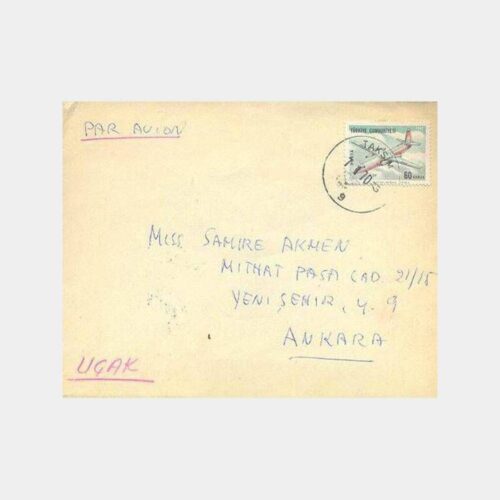 PAR AVION
TÜRKİYE CUMHURİYETİ
60
MISS SAMIRE AKMEN
MITHAT PAŞA CAD 21/15
YENIŞEHIR, Y. 9
ANKARA
UÇAK